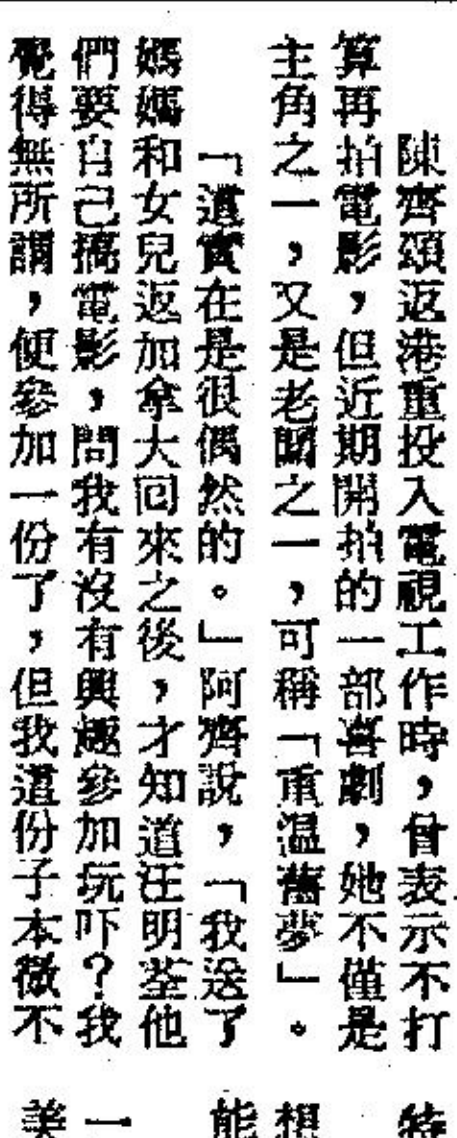 陳齊頌返港重投入電視工作時，曾表示不打
算再拍電影，但近期開拍的一部喜劇，她不僅是
主角之一，又是老闆之一，可稱「重溫舊夢」。
「這實在是很偶然的。」阿齊說，「我送了
媽媽和女兒返加拿大回來之後，才知道汪明荃他
們要自己搞電影，問我有沒有興趣參加玩吓？我
覺得無所謂，便參加一份了，但我這份子本微不
特
想
能
一
美